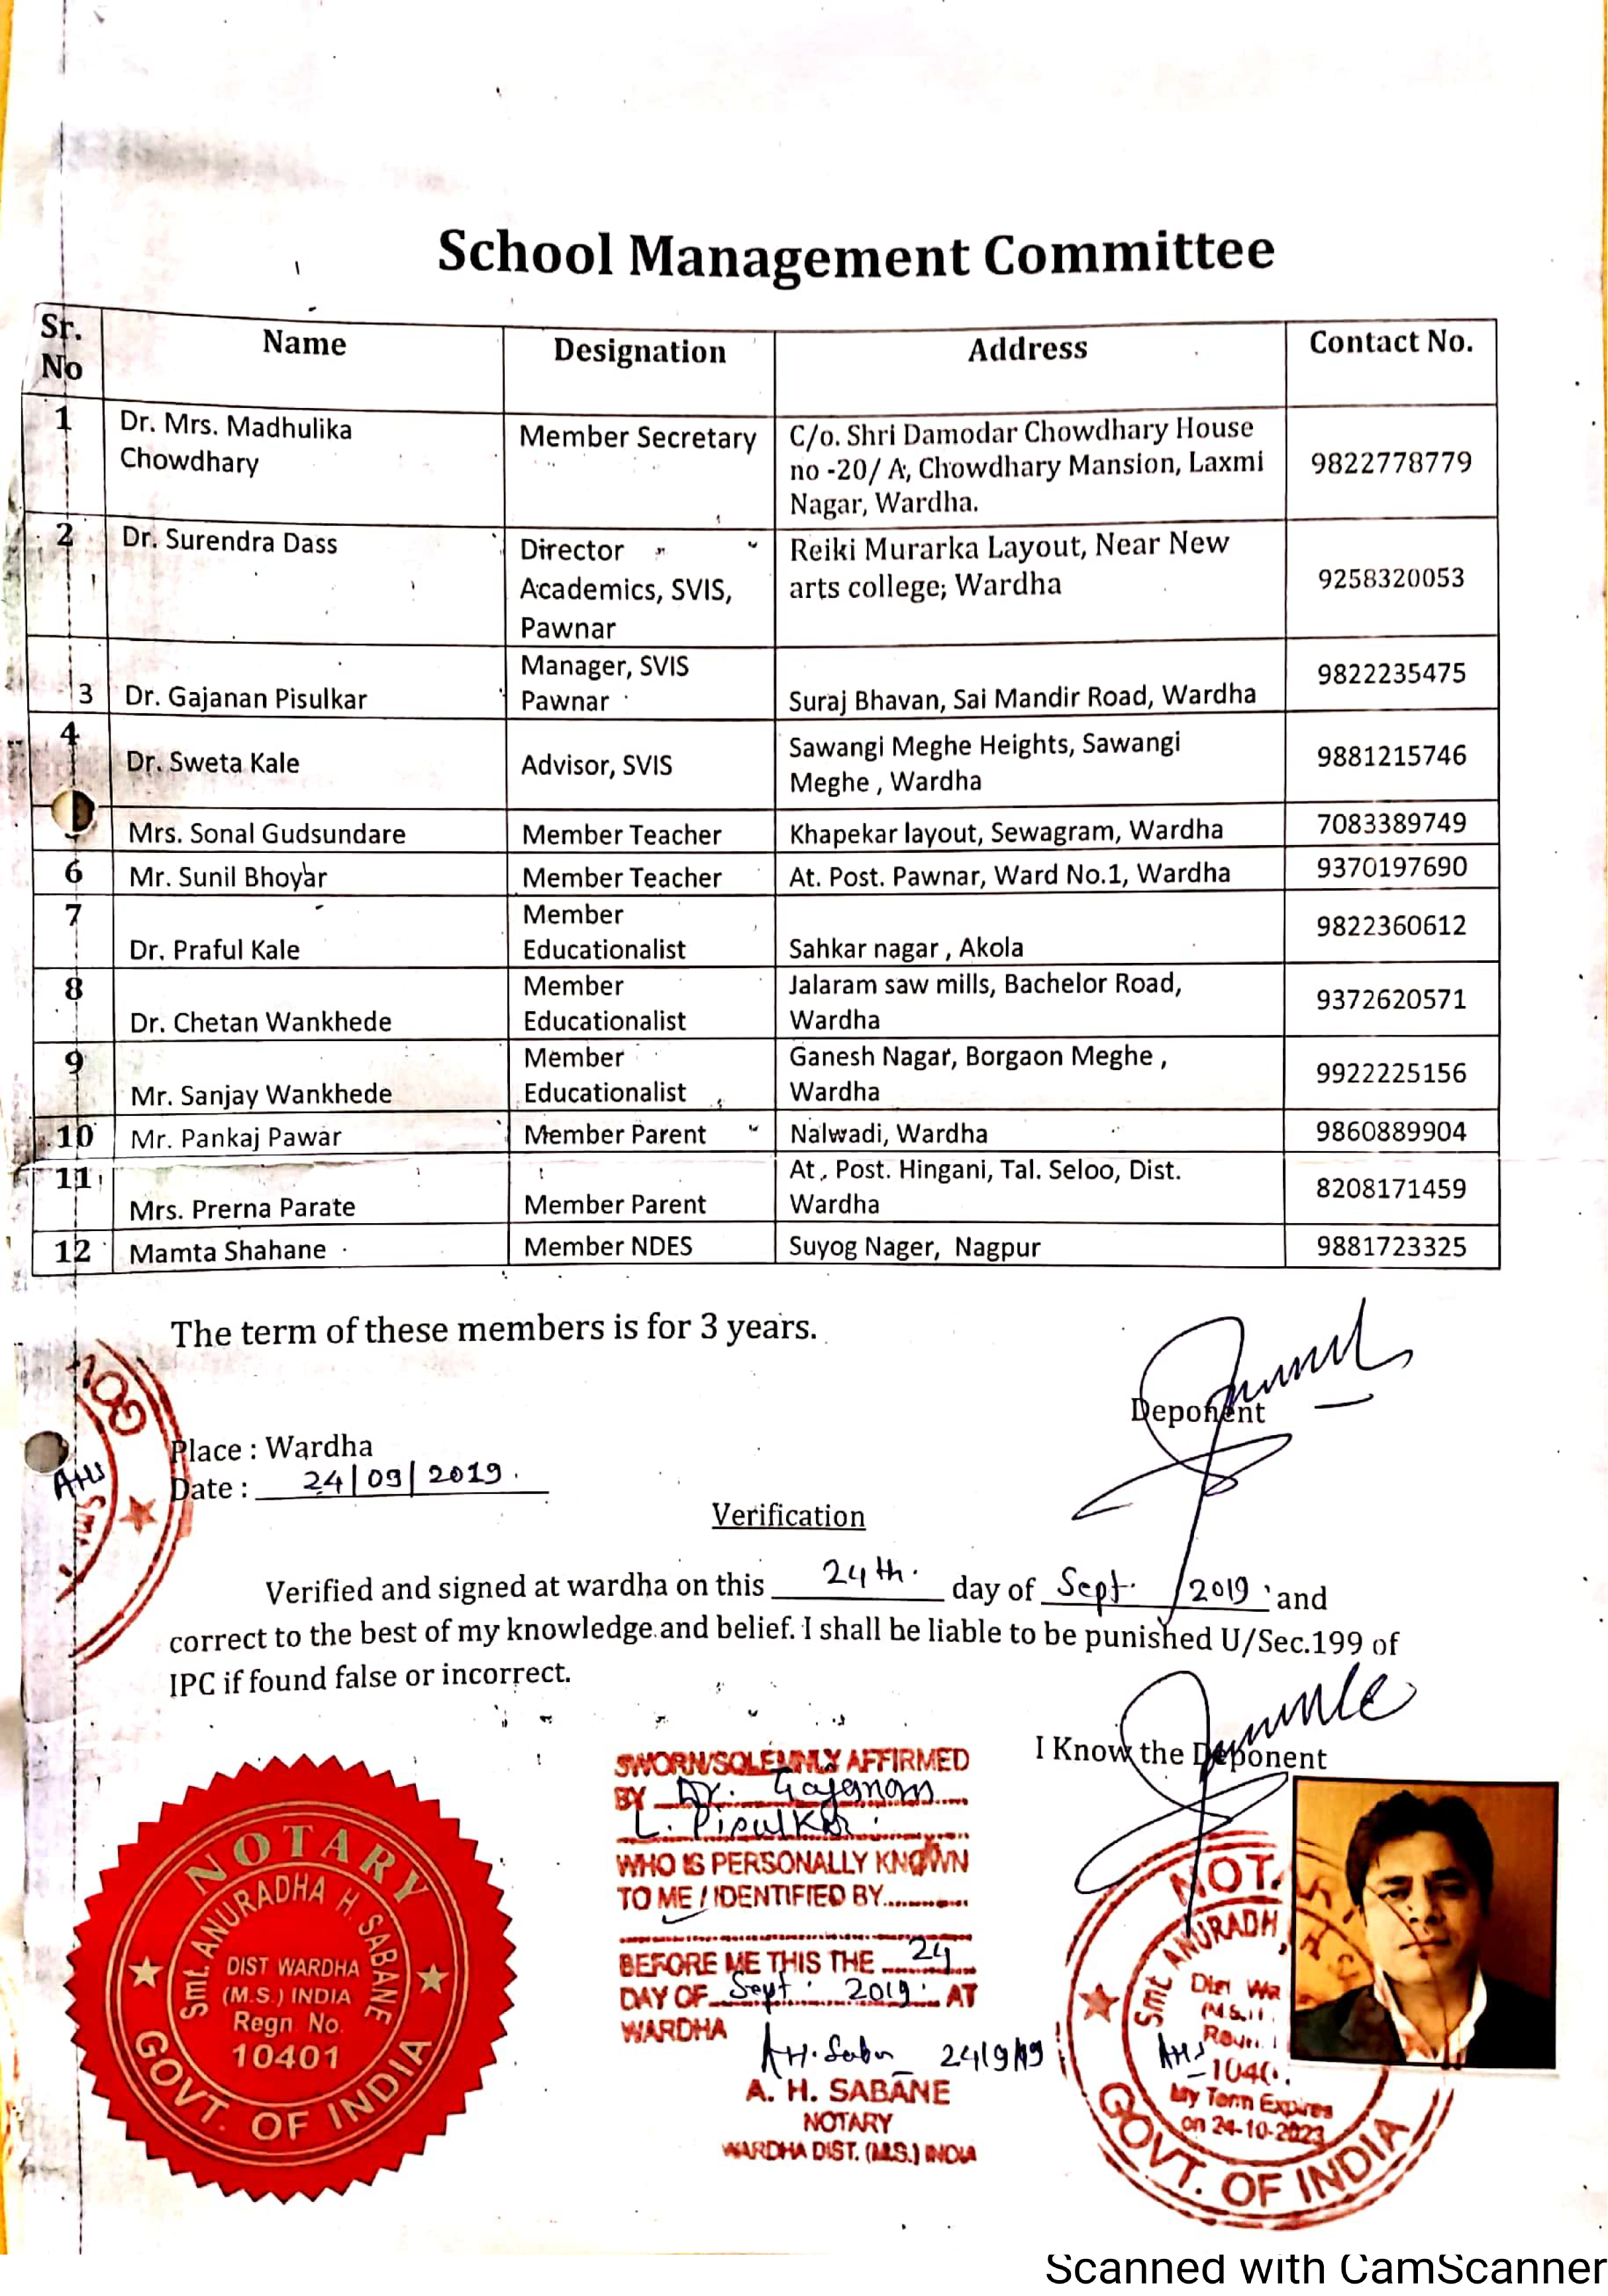 School Management Committee
Sr. No Name Designation Address Contact No.
1 Dr. Mrs. Madhulika Chowdhary Member Secretary C/o. Shri Damodar Chowdhary House no -20/ A, Chowdhary Mansion, Laxmi Nagar, Wardha. 9822778779
2 Dr. Surendra Dass Director Academics, SVIS, Pawnar Reiki Murarka Layout, Near New arts college; Wardha 9258320053
3 Dr. Gajanan Pisulkar Manager, SVIS Pawnar Suraj Bhavan, Sai Mandir Road, Wardha 9822235475
4 Dr. Sweta Kale Advisor, SVIS Sawangi Meghe Heights, Sawangi Meghe , Wardha 9881215746
Mrs. Sonal Gudsundare Member Teacher Khapekar layout, Sewagram, Wardha 7083389749
6 Mr. Sunil Bhoyar Member Teacher At. Post. Pawnar, Ward No.1, Wardha 9370197690
7 Dr. Praful Kale Member Educationalist Sahkar nagar , Akola 9822360612
8 Dr. Chetan Wankhede Member Educationalist Jalaram saw mills, Bachelor Road, Wardha 9372620571
9 Mr. Sanjay Wankhede Member Educationalist Ganesh Nagar, Borgaon Meghe , Wardha 9922225156
10 Mr. Pankaj Pawar Member Parent Nalwadi, Wardha 9860889904
11 Mrs. Prerna Parate Member Parent At , Post. Hingani, Tal. Seloo, Dist. Wardha 8208171459
12 Mamta Shahane Member NDES Suyog Nager, Nagpur 9881723325
The term of these members is for 3 years.
Deponent
Place : Wardha
Date : 24|09|2019.
Verification
Verified and signed at wardha on this 24th. day of Sept. /2019 and
correct to the best of my knowledge and belief. I shall be liable to be punished U/Sec.199 of
IPC if found false or incorrect.
I Know the Deponent
SWORN/SOLEMNLY AFFIRMED
BY Dr. Gajanan
L. Pisulkar
WHO IS PERSONALLY KNOWN
TO ME / IDENTIFIED BY
BEFORE ME THIS THE 24
DAY OF Sept. 2019 AT
WARDHA
24/9/19
A. H. SABANE
NOTARY
WARDHA DIST. (M.S.) INDIA
NOTARY
Smt. ANURADHA H. SABANE
DIST WARDHA
(M.S.) INDIA
Regn. No.
10401
GOVT. OF INDIA
NOT.
Smt ANURADH
My Term Expires
on 24-10-2023
GOVT. OF INDIA
Scanned with CamScanner